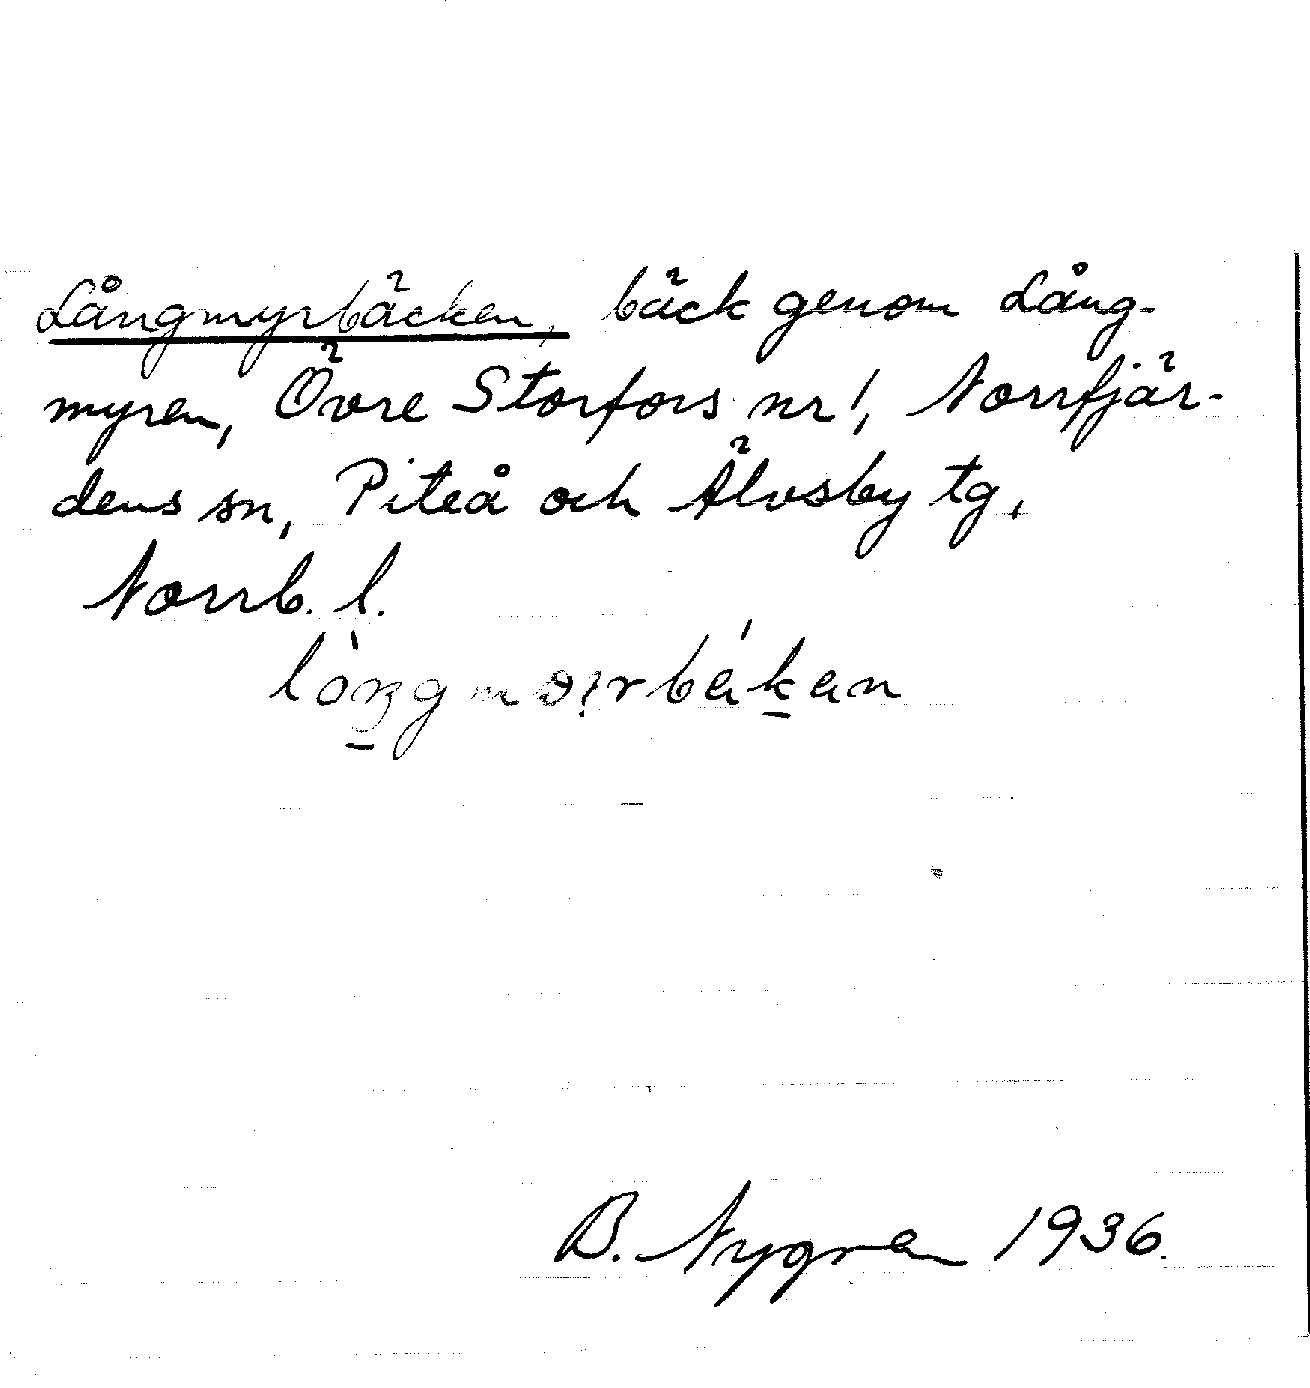 Långmyrbäcken, bäck genom Lång-
myren, Övre Storfors nr 1, Norrfjär-
dens sn, Piteå och Älvsby tg,
Norrb. l.
B. Nygren 1936.